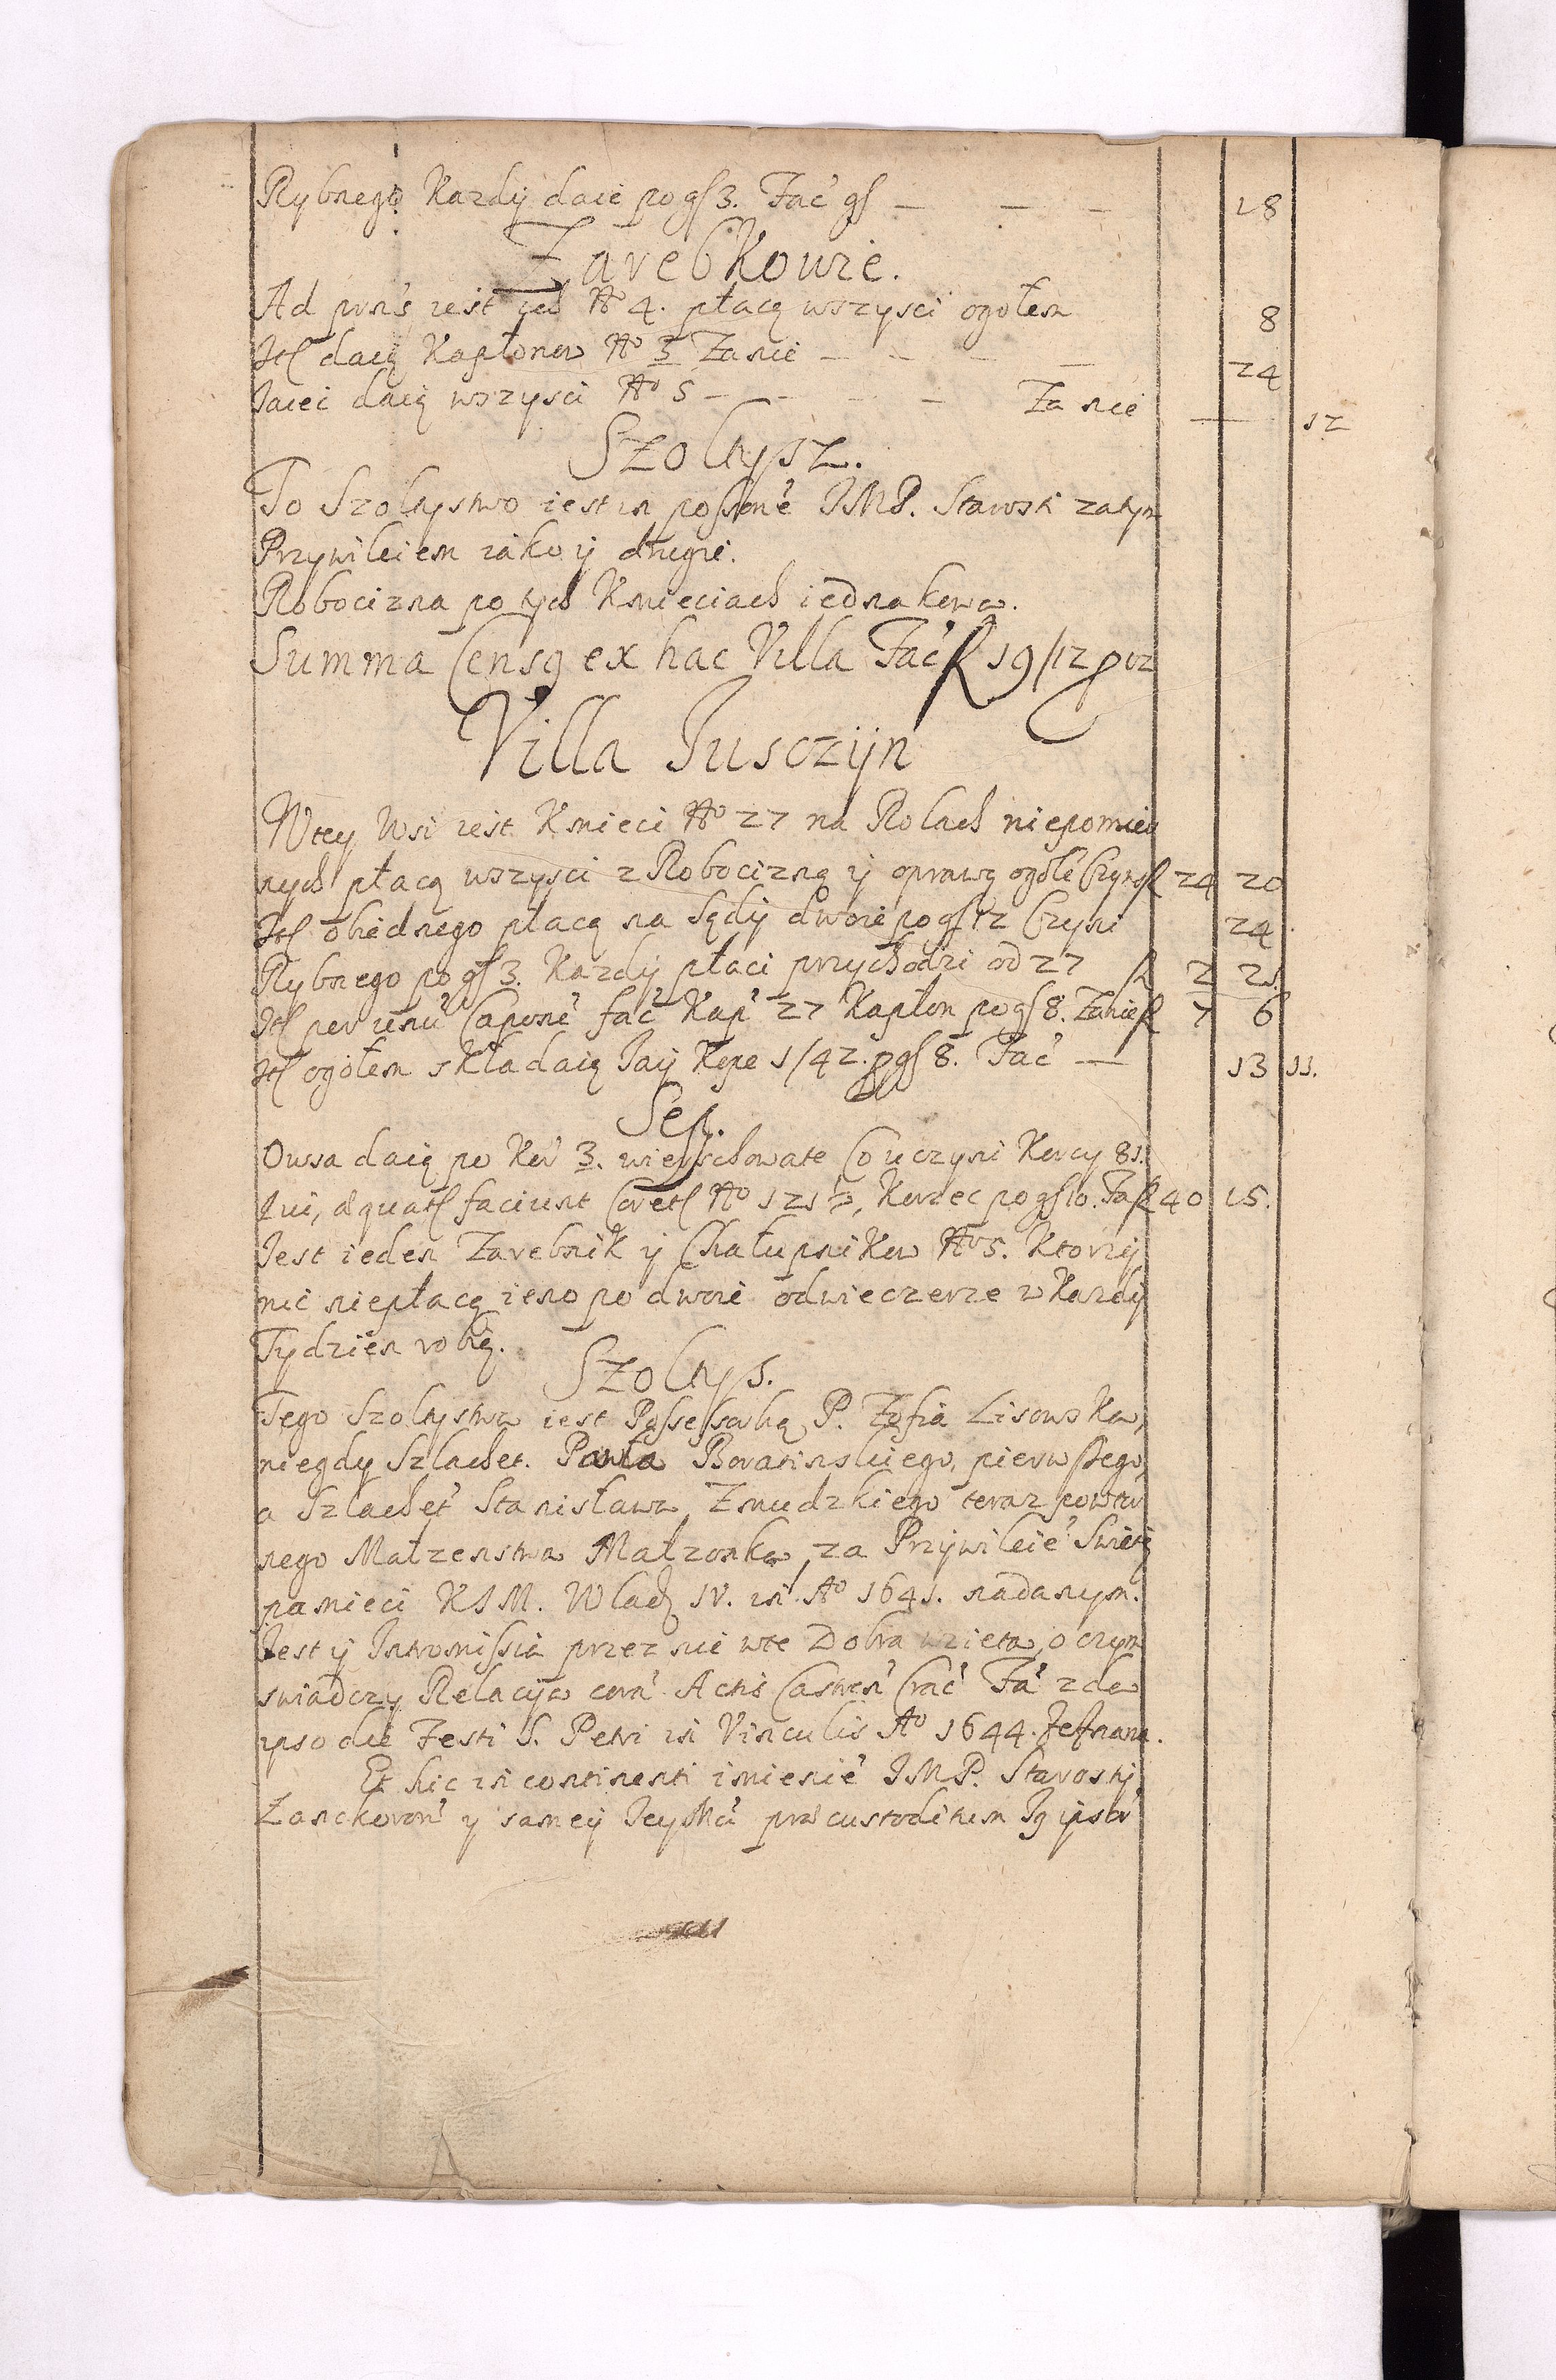 Rybnego Kazdy daie po gſ 3. Fac̃ gſ — — — 18
Zarebkowie.
Ad prn̄s iest ich No 4. płacą wszysci ogołem 8
Itſ daią Kapłonow No 3 Za nie — — — 24
Jaiec daią wszysci No 5 — — — — Za nie — 12
Szołtysz.
To Szoltystwo iest in poſſion̄e JMP. Starosti za tym
Przywileiem iako y drugie.
Robocizna po tych Kmieciach iednakowa.
Summa Censq ex hac Villa Fac̃ fl 19/12 p 12
Villa Jusczÿn
W tey Wsi iest Kmieci No 27 na Rolach niepomier
nych płacą wszysci z Robocizną y oprawą ogołē Czynſ fl 24 20
Itſ obiednego płacą na Sądy dwoie po gſ 12 Czyni 24
Rybnego po gſ 3. Kazdy płaci przychodzi od 27 fl 2 21
Itſ per unū Caponē fac̃ Kap̄ 27 Kapłon po gſ 8. Za nie fl 7 6
Itſ ogołem składaią Jay Kope 1/42. p gſ 8. Fac̃ — 13 11.
Sep.
Owsa daią po Kor̄ 3. wierschowate Co uczyni Korcy 81.
Qui, aequatſ faciunt Coretſ No 121 ½, Korzec po gſ 10. Fa fl 40 15.
Jest ieden Zarebnik y Chałupnikow No 5. Ktorzy
nic niepłacą ieno po dwoie odwieczerze w Kazdy
Tydzien robią.
Szołtys.
Tego Szoltystwa iest Poſseſsorką P. Zofia Lisowska,
niegdy Szlachet. Pawła Boratinskiego, pierwſzego,
a Szlachet̄ Stanisława Zmudzkiego teraz powtor
nego Małzenstwa Małzonka, za Przywileiē Swietÿ
pamieci KJM. Wlad. IV. in Ao 1641. nadanym.
Jest y Intromiſsia przez nie w te Dobra wzieta, o czym
swiadczy Relacya corā Actis Castren̄ Crac̄ Fā 2da
ipso die Festi S. Petri in Vinculis Ao 1644.
Et hic in continenti imieniē JMP. Starosty
Lanckoron̄ y samey Jeymci prae custoditum Jq ipsor̄